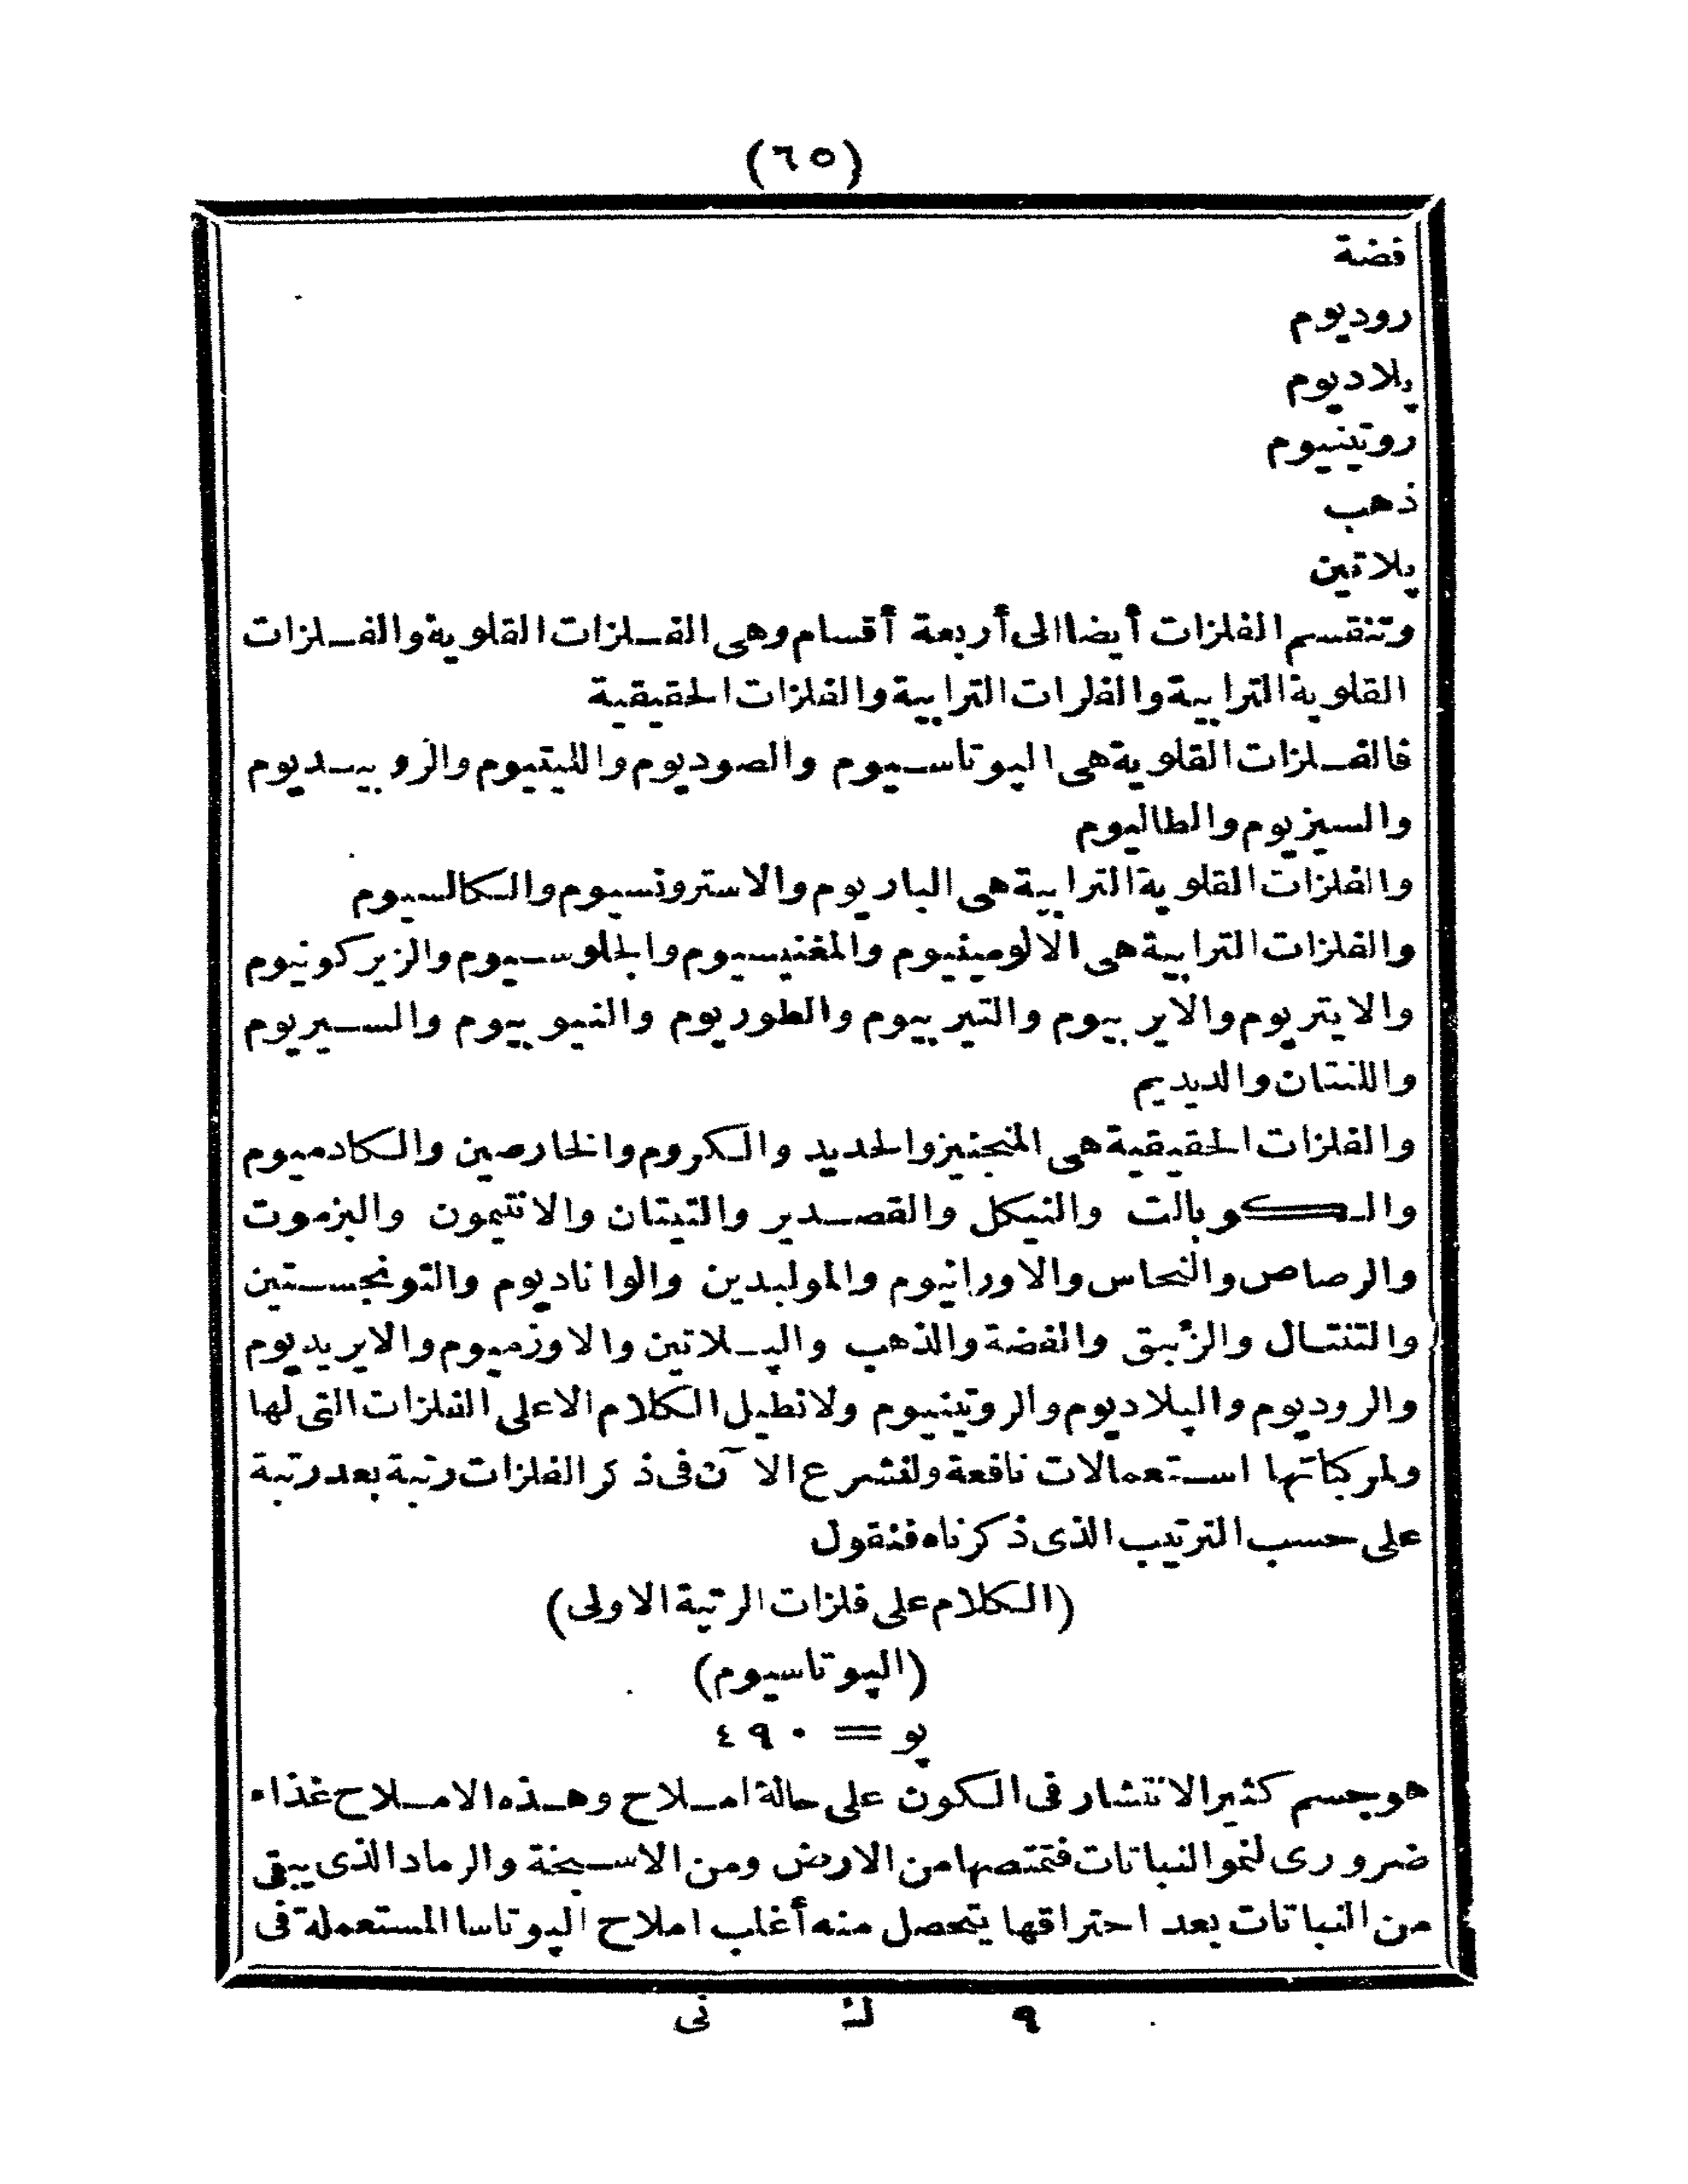 (٦٥)
فضة
روديوم
پلاديوم
روتينيوم
ذهب
پلاتين
وتنقسم الفلزات أيضا الى أربعة أقسام وهى الفلزات القلوية والفلزات
القلوية الترابية والفلزات الترابية والفلزات الحقيقية
فالفلزات القلوية هى الپوتاسيوم والصوديوم والليتيوم والروبيديوم
والسيزيوم والطاليوم
والفلزات القلوية الترابية هى الباريوم والاسترونسيوم والكالسيوم
والفلزات الترابية هى الالومينيوم والمغنيسيوم والجلوسيوم والزيركونيوم
والايتريوم والايربيوم والتيربيوم والطوريوم والنيوبيوم والسيريوم
واللنتان والديديم
والفلزات الحقيقية هى المنجنيز والحديد والكروم والخارصين والكادميوم
والكوبالت والنيكل والقصدير والتيتان والانتيمون والبزموت
والرصاص والنحاس والاورانيوم والموليبدين والواناديوم والتونجستين
والتنتال والزئبق والفضة والذهب والپلاتين والاوزميوم والايريديوم
والروديوم والپلاديوم والروتينيوم ولانطيل الكلام الاعلى الفلزات التى لها
ولمركباتها استعمالات نافعة ولنشرع الآن فى ذكر الفلزات رتبة بعد رتبة
على حسب الترتيب الذى ذكرناه فنقول
(الكلام على فلزات الرتبة الاولى)
(الپوتاسيوم)
پو = ٤٩٠
هو جسم كثير الانتشار فى الكون على حالة املاح وهذه الاملاح غذاء
ضرورى لنمو النباتات فتمتصها من الارض ومن الاسبخة والرماد الذى يبقى
من النباتات بعد احتراقها يتحصل منه أغلب املاح الپوتاسا المستعملة فى
٩ ك نى